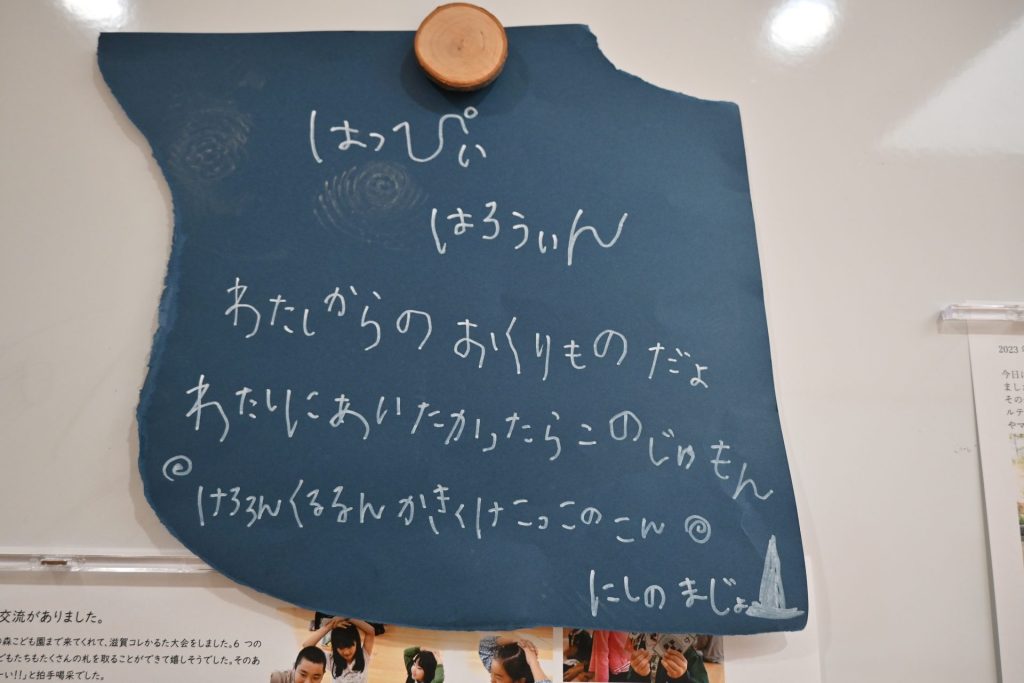 はっぴぃ
はろうぃん
わたしからの おくりものだよ
わたしにあいたかったらこのじゅもん
けろろんくるるんかきくけこっこのこん
にしの まじょ
交流がありました。
森こども園まで来てくれて、滋賀コレかるた大会をしました。6 つの
どもたちもたくさんの札を取ることができて嬉しそうでした。そのあ
ーい!!」と拍手喝采でした。
2023
今日
ました
その
ルテ
やマ